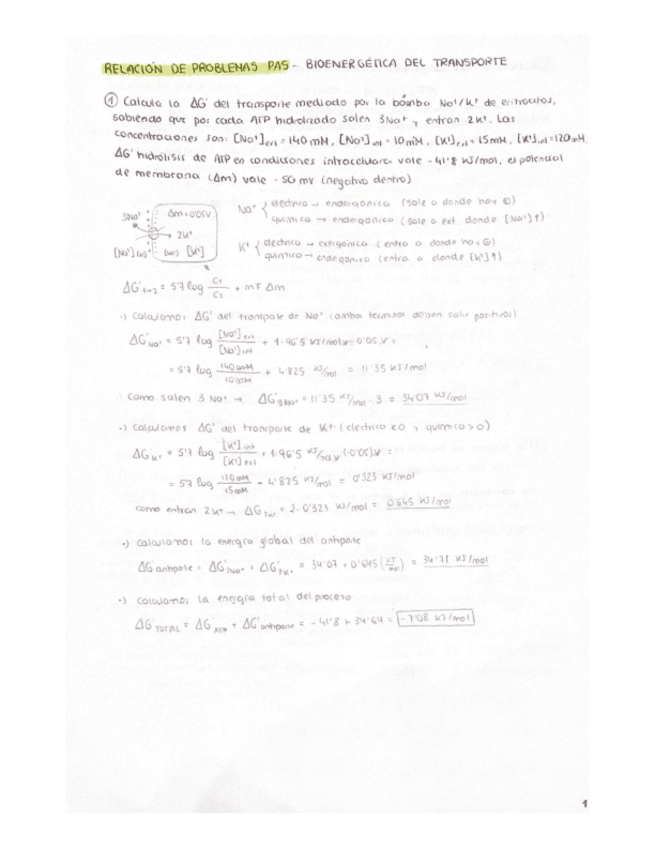 RELACIÓN DE PROBLEMAS PAS - BIOENERGÉTICA DEL TRANSPORTE
① Calcula la ΔG' del transporte mediado por la bomba Na⁺/K⁺ de eritrocitos,
sabiendo que por cada ATP hidrolizado salen 3Na⁺ y entran 2K⁺. Las
concentraciones son: [Na⁺]ext = 140 mM, [Na⁺]int = 10 mM, [K⁺]ext = 15 mM, [K⁺]int = 120 mM.
ΔG' hidrólisis de ATP en condiciones intracelulares vale -41'8 KJ/mol, el potencial
de membrana (Δm) vale -50 mV (negativo dentro)
3Na⁺ Δm=0'05V
→ 2K⁺
[K⁺]
Na⁺ { eléctrico → endergónico (sale a donde hay ⊕)
químico → endergónico (sale a ext. donde [Na⁺]↑)
K⁺ { eléctrico → exergónico (entra a donde hay ⊖)
químico → endergónico (entra a donde [K⁺]↑)
ΔG'₁→₂ = 5'7 log C₂/C₁ + mFΔm
·) Calculamos ΔG' del transporte de Na⁺ (ambos términos deben salir positivos)
ΔG'Na⁺ = 5'7 log [Na⁺]ext/[Na⁺]int + 1·96'5 KJ/mol·V · 0'05 V =
= 5'7 log 140mM/10mM + 4'825 KJ/mol = 11'35 KJ/mol
Como salen 3 Na⁺ → ΔG'3Na⁺ = 11'35 KJ/mol · 3 = 34'07 KJ/mol
·) Calculamos ΔG' del transporte de K⁺ (eléctrico <0 y químico >0)
ΔGK⁺ = 5'7 log [K⁺]int/[K⁺]ext + 1·96'5 KJ/mol·V (-0'05)V =
= 5'7 log 120mM/15mM - 4'825 KJ/mol = 0'323 KJ/mol
como entran 2K⁺ → ΔG2K⁺ = 2·0'323 KJ/mol = 0'645 KJ/mol
·) Calculamos la energía global del antiporte
ΔG antiporte = ΔG'3Na⁺ + ΔG'2K⁺ = 34'07 + 0'645 (KJ/mol) = 34'71 KJ/mol
·) Calculamos la energía total del proceso
ΔG'TOTAL = ΔG'ATP + ΔG'antiporte = -41'8 + 34'64 = -7'08 KJ/mol
1